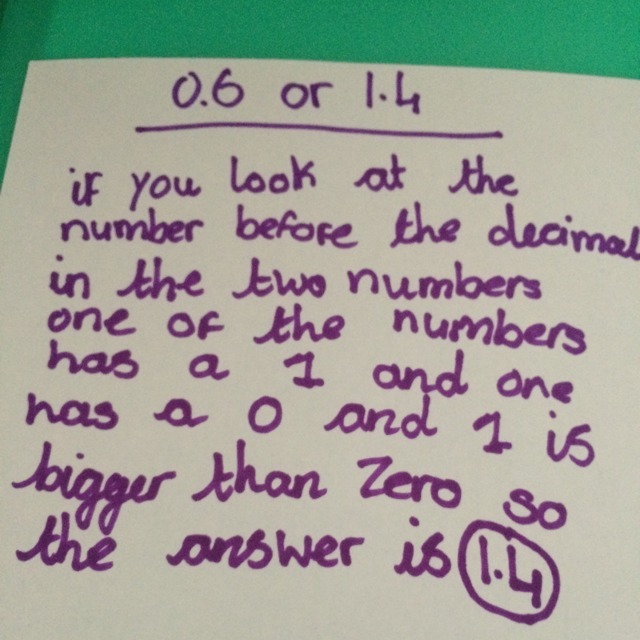 0.6 or 1.4
if you look at the
number before the decimal
in the two numbers
one of the numbers
has a 1 and one
has a 0 and 1 is
bigger than Zero so
the answer is 1.4